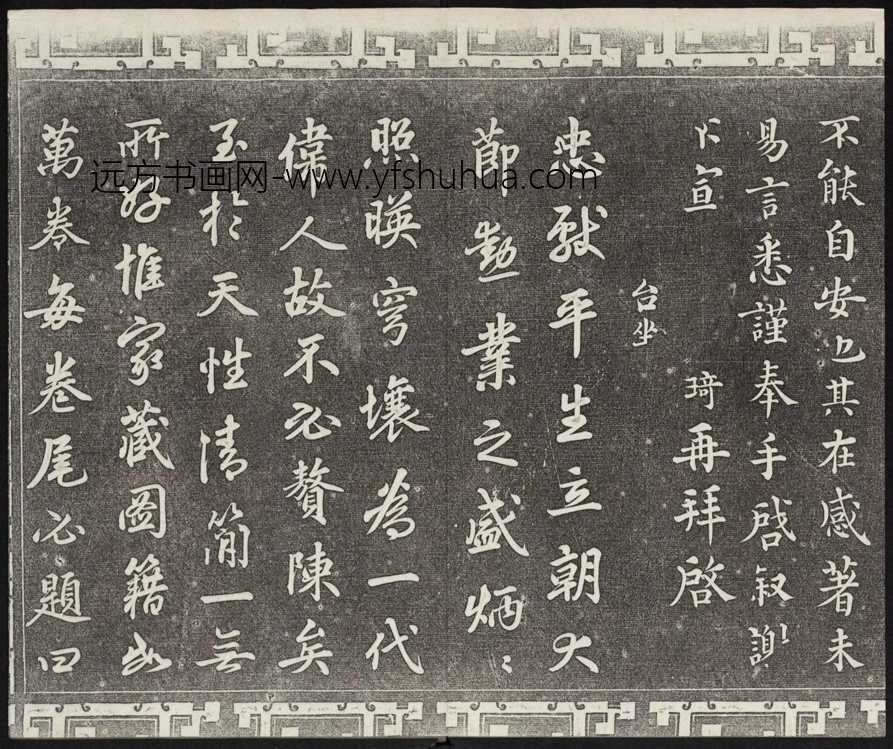 不能自安也其在感著未
易言悉謹奉手啓叙謝
不宣
琦再拜啓
台坐
忠獻平生立朝大
節勲業之盛炳〻
照暎穹壤為一代
偉人故不必贅陳矣
至於天性清簡一無
所好惟家藏圖籍
萬卷每卷尾必題曰
远方书画网-www.yfshuhua.com